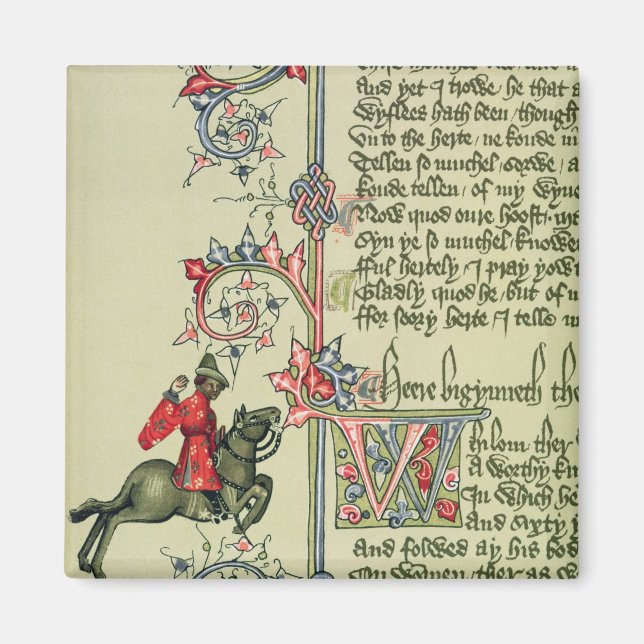 Thise monthes two
And yet I trowe / he that a
Wyflees hath been / though
Vn to the herte / ne koude in
Tellen so muchel / sorwe / a
Koude tellen / of my wyue
Now quod oure hoost /
Syn ye so muchel knowe
fful hertely / I pray yow t
Gladly quod he / but of m
ffor soory herte / I telle m
Heere bigynneth the
Whilom ther
A worthy kn
In which he
And sixty y
And folwed ay his bod
On wommen / ther as w